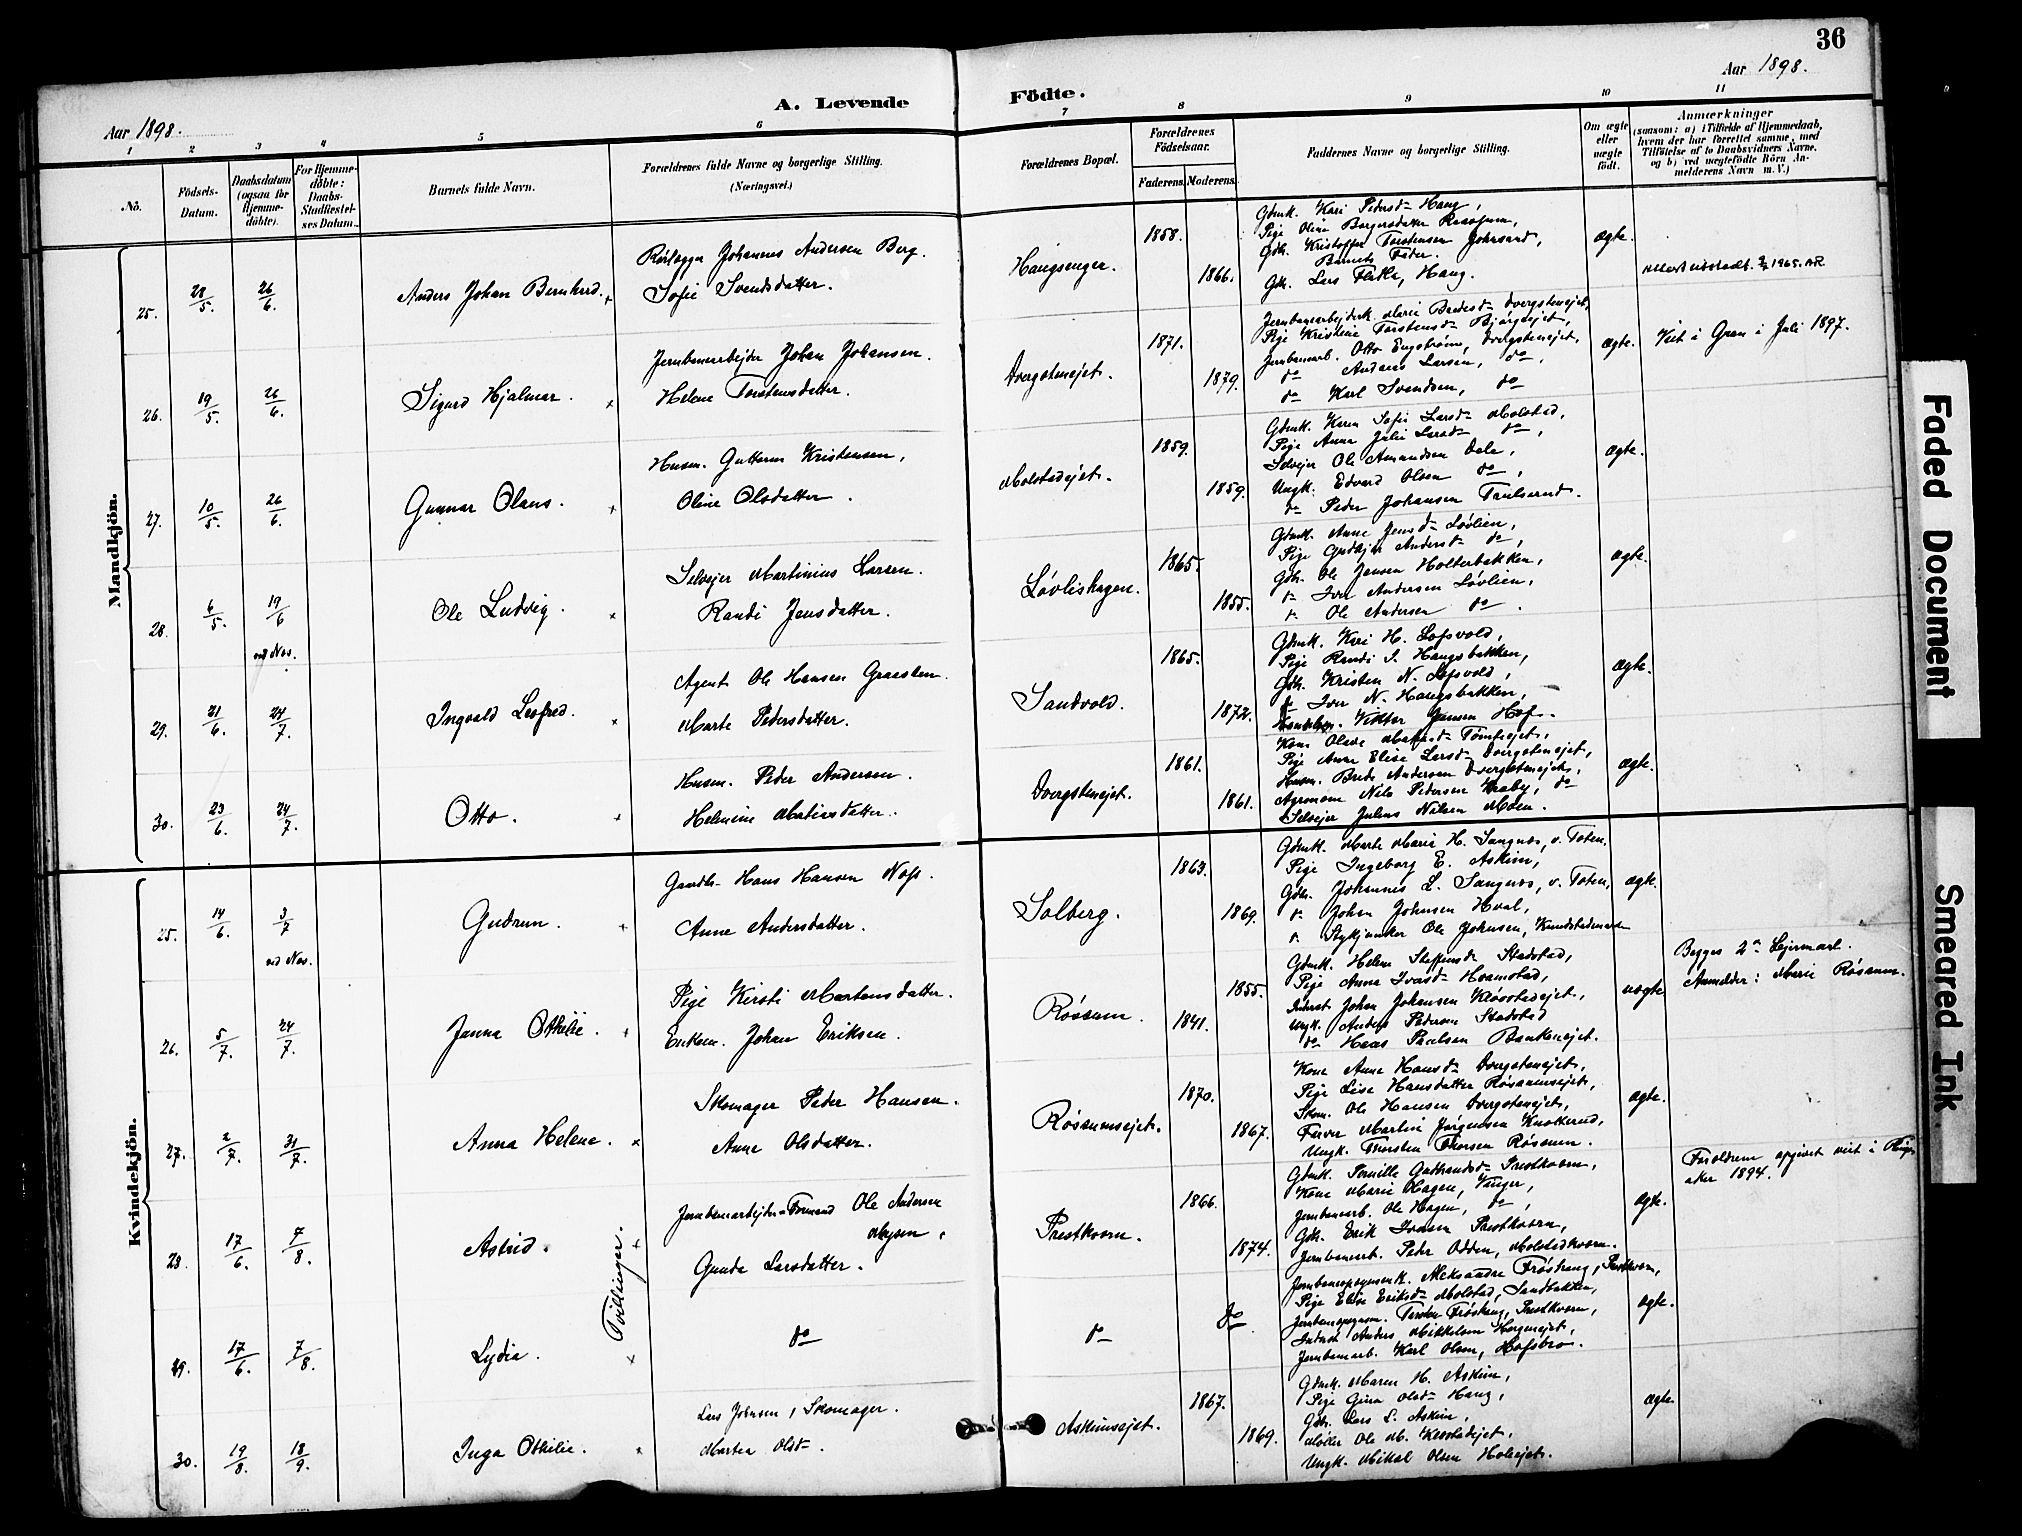 36
Aar 1898.
A. Levende Födte.
Aar 1898.
1 2 3 4 5 6 7 8 9 10 11
No.
Födsels-Datum.
Daabsdatum (ogsaa for Hjemme-döbte).
For Hjemme-döbte: Daabs-Stadfæstel-ses Datum.
Barnets fulde Navn.
Forældrenes fulde Navne og borgerlige Stilling.
(Næringsvei.)
Forældrenes Bopæl.
Forældrenes Födselsaar.
Faderens. Moderens.
Faddernes Navne og borgerlige Stilling.
Om ægte eller uægte födt.
Anmærkninger
(saasom: a) i Tilfælde af Hjemmedaab, hvem der har forrettet samme, med Tilföielse af to Daabsvidners Navne, og b) ved uægtefödte Börn An-melderens Navn m. V.)
Mandkjön.
25. 28/5. 26/6. Anders Johan Bernhard.
Johannes Andersen Berg.
Sofie Svendsdatter.
Haugsenger. 1858. 1866.
Gdmk. Kari Pedersd- Haug,
Pige Oline Borgersdatter
Gdb. Kristoffer Torstensen
Barnets Fader.
Gdb. Lars Haug.
ægte.
26. 19/5. 26/6. Sigurd Hjalmar.
Jernbanearbejder Johan Johansen.
Helene Torstensdatter.
Dvergstenejet. 1871. 1879.
Jernbanearbejderk. Marie Dvergstenejet,
Pige Kristine Torstensd-
Jernbanearb. Otto Engström, Dvergstenejet,
do Anders Larsen, do,
do Karl Svendsen, do
ægte. Viet i Gran i Juli 1897.
27. 10/5. 26/6. Gunnar Olaus.
Husm. Guttorm Kristensen,
Oline Olsdatter.
Molstadejet. 1859. 1859.
Gdmk. Karen Sofie Larsd- Molstad,
Pige Anna Julie Larsd- do,
Selvejer Ole Amundsen Dale,
Ungk. Edvard Olsen do,
do Peder Johansen
ægte.
28. 6/5. 19/6 ved Nes. Ole Ludvig.
Selvejer Martinius Larsen.
Randi Jensdatter.
Løvlishagen. 1865. 1855.
Gdmk. Anne Jensd- Løvlien,
Pige Andersd- do,
Gdb. Ole Jensen Holterbakken,
d- Iver Andersen Løvlien,
d- Ole Andersen do.
ægte.
29. 21/6. 24/7. Ingvald
Agent Ole Hansen
Marte Pedersdatter.
Sandvold. 1865. 1872.
Gdmk. Kari H.
Pige Randi I. Haugsbakken,
Gdb. Kristen N.
d- Iver N. Haugsbakken,
Jensen Hof.
ægte.
30. 23/6. 24/7. Otto.
Husm. Peder Andersen.
Helmine
Dvergstenejet. 1861. 1861.
Kone
Pige Anne Elise Larsd- Dvergstenejet,
Husm. Brede Andersen Dvergstenejet,
Agronom Nils Pedersen do
Selvejer Julius Nilsen Moen.
ægte.
Kvindekjön.
25. 14/6. 3/7 ved Nes. Gudrun.
Gaardb. Hans Hansen
Anne Andersdatter.
Solberg. 1863. 1869.
Gdmk. Marte Marie H. Sangnes, v. Toten,
Pige Ingeborg E. Askim,
Gdb. Johannes L. Sangnes, v. Toten,
d- Johan Johnsen Hval,
d- Stykjunker Ole Johnsen,
ægte.
26. 5/7. 24/7. Janna Othilie.
Pige Kirsti Mortensdatter.
Enkem. Johan Eriksen.
Røssum. 1841. 1855.
Gdmk. Helene Steffensd- Stadstad,
Pige Anna Ivarsd- Hvamstad,
Inderst Johan Johansen
Ungk. Anders Pedersen Stadstad
do Hans Paulsen Bankenejet.
uægte Begges 2de Lejermaal.
Anmelder: Marie Røssum.
27. 2/7. 31/7. Anna Helene.
Skomager Peder Hansen.
Anne Olsdatter.
Røssumsejet. 1870. 1867.
Kone Anne Hansd- Dvergstenejet,
Pige Lise Hansdatter Røssumsejet,
Skom. Ole Hansen Dvergstenejet,
Farver Martin Jørgensen
Ungk. Thorsten Thorsen Røssum.
ægte.
28. 17/6. 7/8. Astrid.
Jernbanearbejder-Formand Ole Andersen Mysen,
Gunda Larsdatter.
Tvillinger.
Prestkvern. 1866. 1874.
Gdmk. Pernille Gulbrandsd- Prestkvern,
Kone Marie Hagen, Vanger,
Jernbanearb. Ole Hagen, do,
Gdb. Erik Iversen Prestkvern,
Jernbanearb. Peder Odden, Molstadkvern.
ægte. Forældrene opgivet viet i
aker 1894.
29. 17/6. 7/8. Lydia.
do
do do
Aleksandra Frøshaug, Prestkvern,
Pige Elise Eriksd- Molstad, Sandbakken,
Frøshaug, Prestkvern,
Inderst Anders Mikkelsen
Jernbanearb. Karl Olsen, Hofsbro.
ægte.
30. 19/8. 18/9. Inga Othilie.
Lars Johnsen, Skomager.
Martea Olsd-.
Askimsejet. 1867. 1869.
Gdmk. Maren H. Askim,
Pige Gina Olsd- Haug,
Gdb. Lars L. Askim,
Møller Ole M.
Ungk. Mikal Olsen
ægte
Faded Document
Smeared Ink